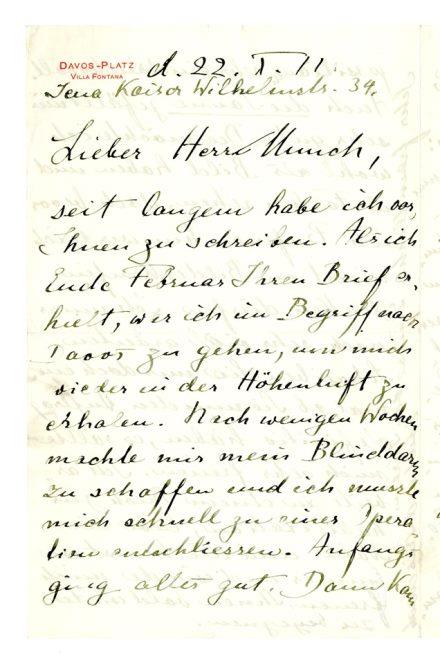 DAVOS-PLATZ
VILLA FONTANA
d. 22. X. 11.
Jena Kaiser Wilhelmstr. 34.
Lieber Herr Munch,
seit langem habe ich vor,
Ihnen zu schreiben. Als ich
Ende Februar Ihren Brief er-
hielt, war ich im Begriff nach
Davos zu gehen, um mich
wieder in der Höhenluft zu
erholen. Nach wenigen Wochen
machte mir mein Blinddarm
zu schaffen und ich musste
mich schnell zu einer Opera
tion entschliessen. Anfangs
ging alles gut. Dann kam